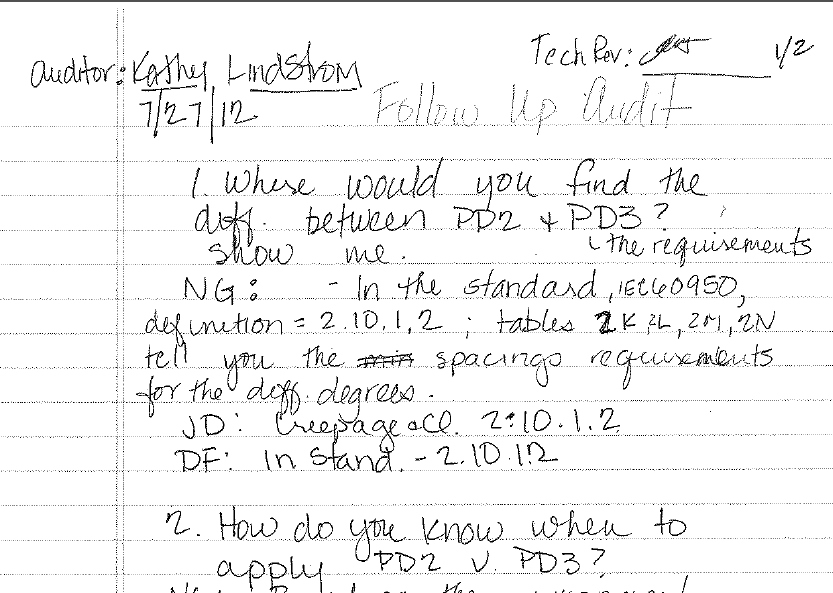 Tech Rev: 1/2
Auditor: Kathy Lindstrom
7/27/12 Follow Up Audit
1. Where would you find the
diff. between PD2 + PD3?
show me. the requirements
NG: - In the standard, IEC60950,
definition = 2.10.1.2 ; tables 2K, 2L, 2M, 2N
tell you the min spacings requirements
for the diff. degrees.
JD: Creepage & Cl. 2.10.1.2
DF: In Stand. - 2.10.1.2
2. How do you know when to
apply PD2 v. PD3?